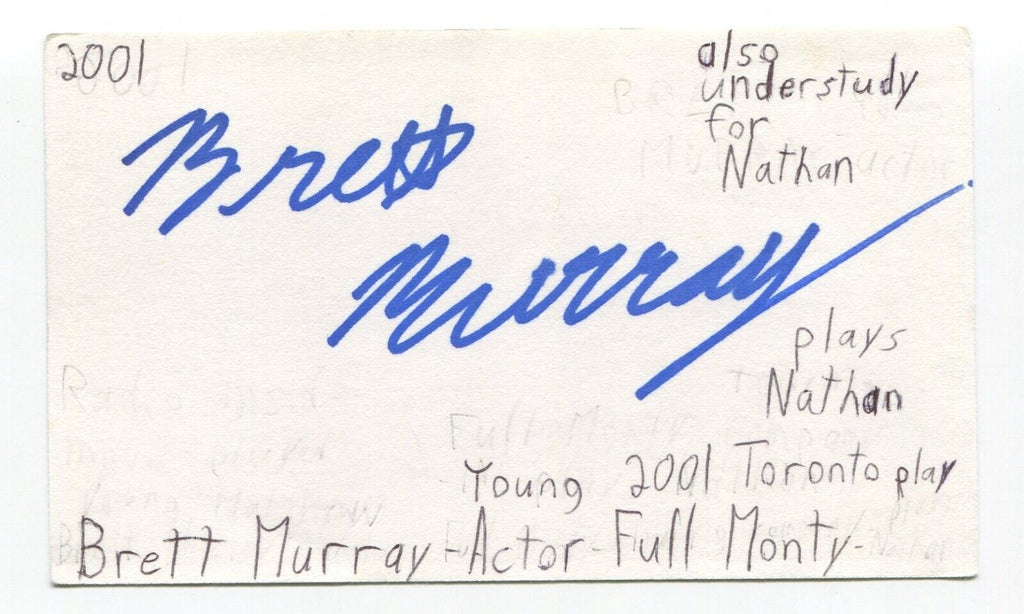 2001
also
understudy
for
Nathan
Brett
Murray
plays
Nathan
Young 2001 Toronto play
Brett Murray-Actor-Full Monty-